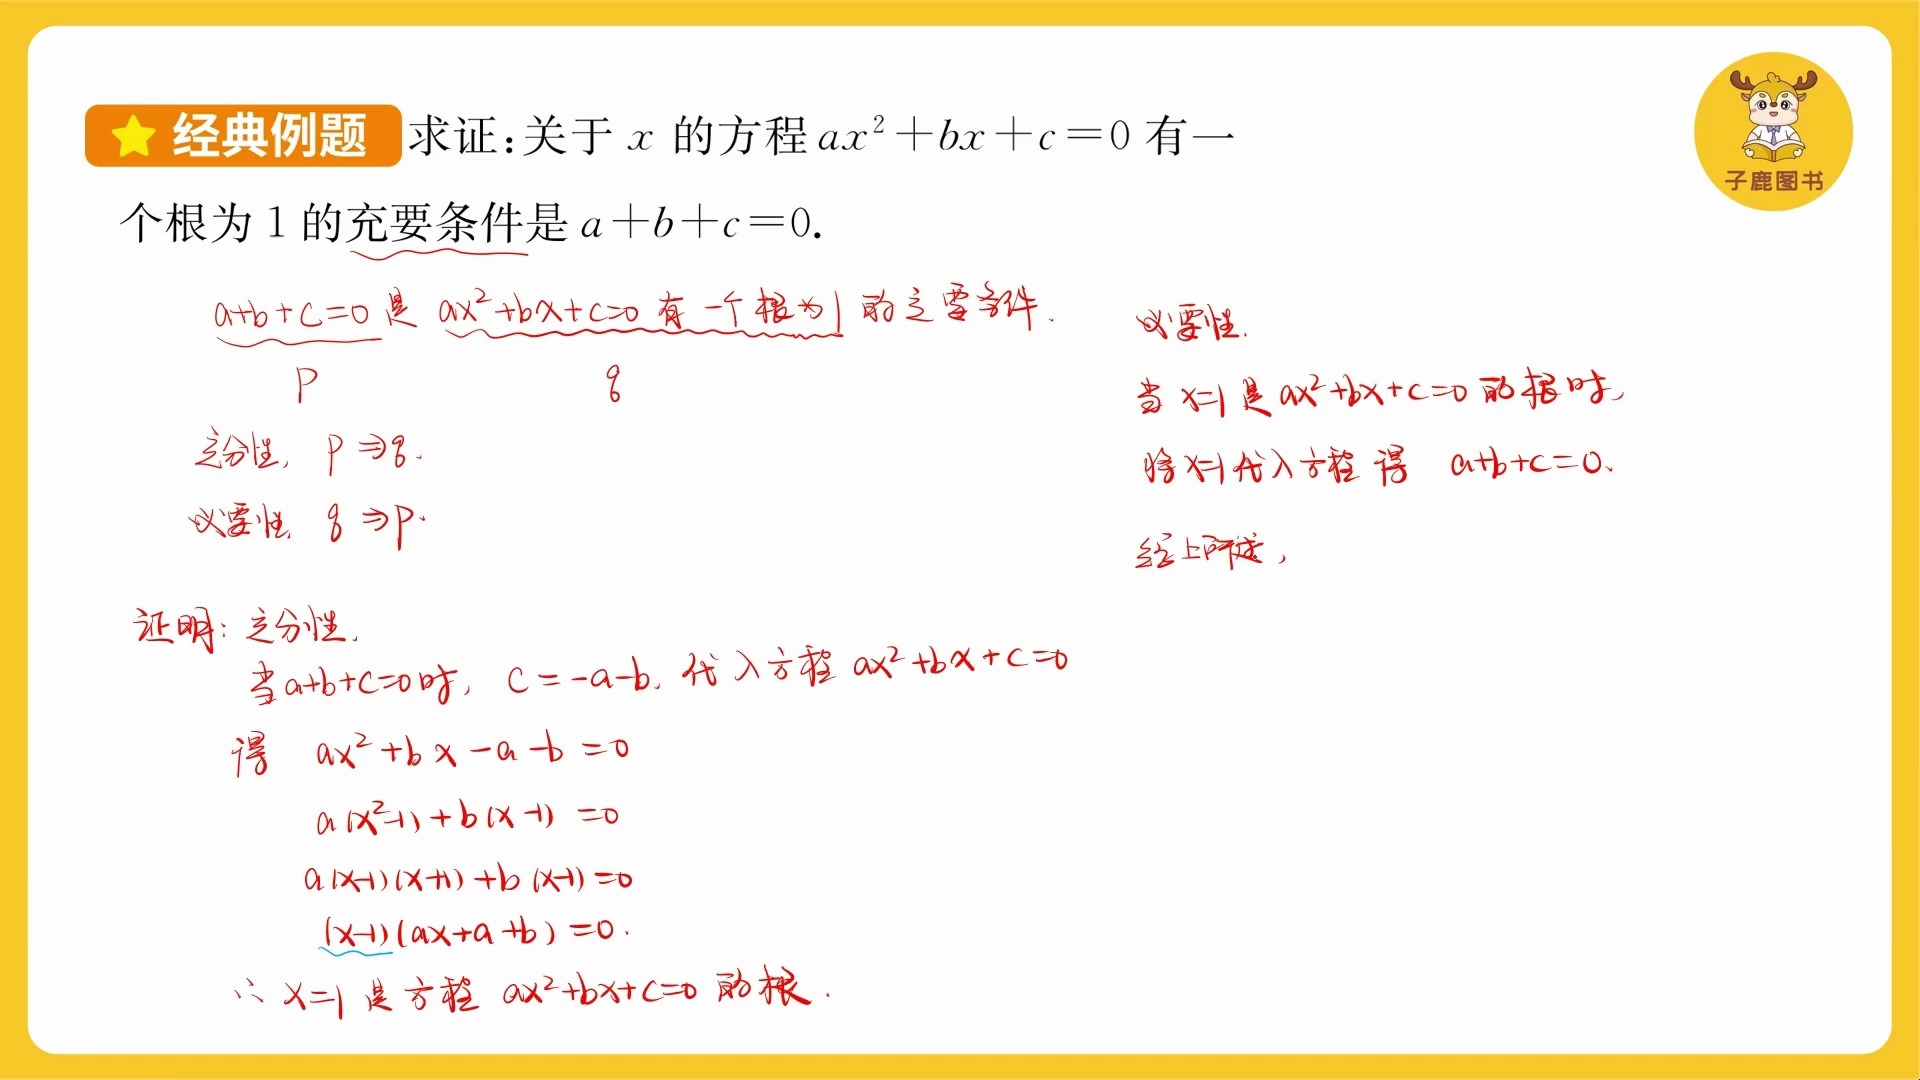 经典例题 求证:关于 x 的方程 ax²+bx+c=0 有一
个根为 1 的充要条件是 a+b+c=0.
子鹿图书
a+b+c=0 是 ax²+bx+c=0 有一个根为1 的充要条件.
p q
充分性, p⇒q.
必要性, q⇒p.
证明: 充分性.
当a+b+c=0时, c=-a-b, 代入方程 ax²+bx+c=0
得 ax²+bx-a-b=0
a(x²-1)+b(x-1)=0
a(x-1)(x+1)+b(x-1)=0
(x-1)(ax+a+b)=0.
∴ x=1 是方程 ax²+bx+c=0 的根.
必要性.
当 x=1 是 ax²+bx+c=0 的根时,
将x=1代入方程得 a+b+c=0.
综上所述,